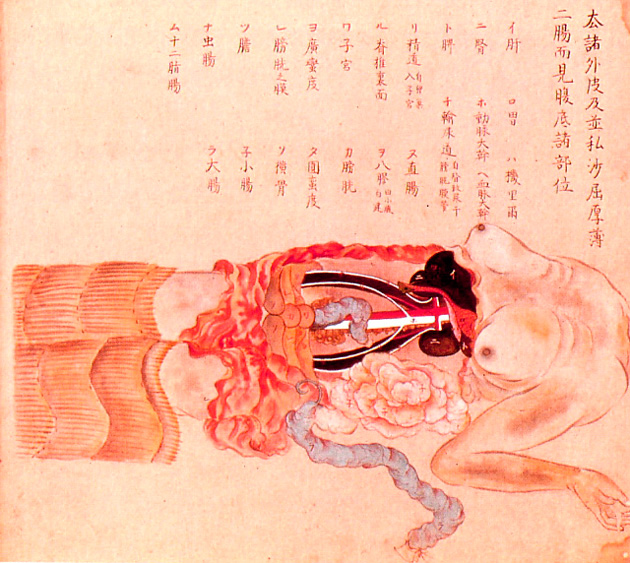 厺諸外皮及並私沙屈厚薄
二腸而見腹底諸部位
イ肝 ロ胃 ハ機里爾
ニ腎 ホ動脉大幹 ヘ血脉大幹
ト チ輸尿道
リ精道 入子宮 ヌ直腸
ル脊椎裏面 ヲ八膠
ワ子宮 カ膀胱
ヨ廣蛮度 タ圓蛮度
レ膀胱之膜 ソ横骨
ツ膽 子小腸
ナ虫腸 ラ大腸
ム十二肪腸